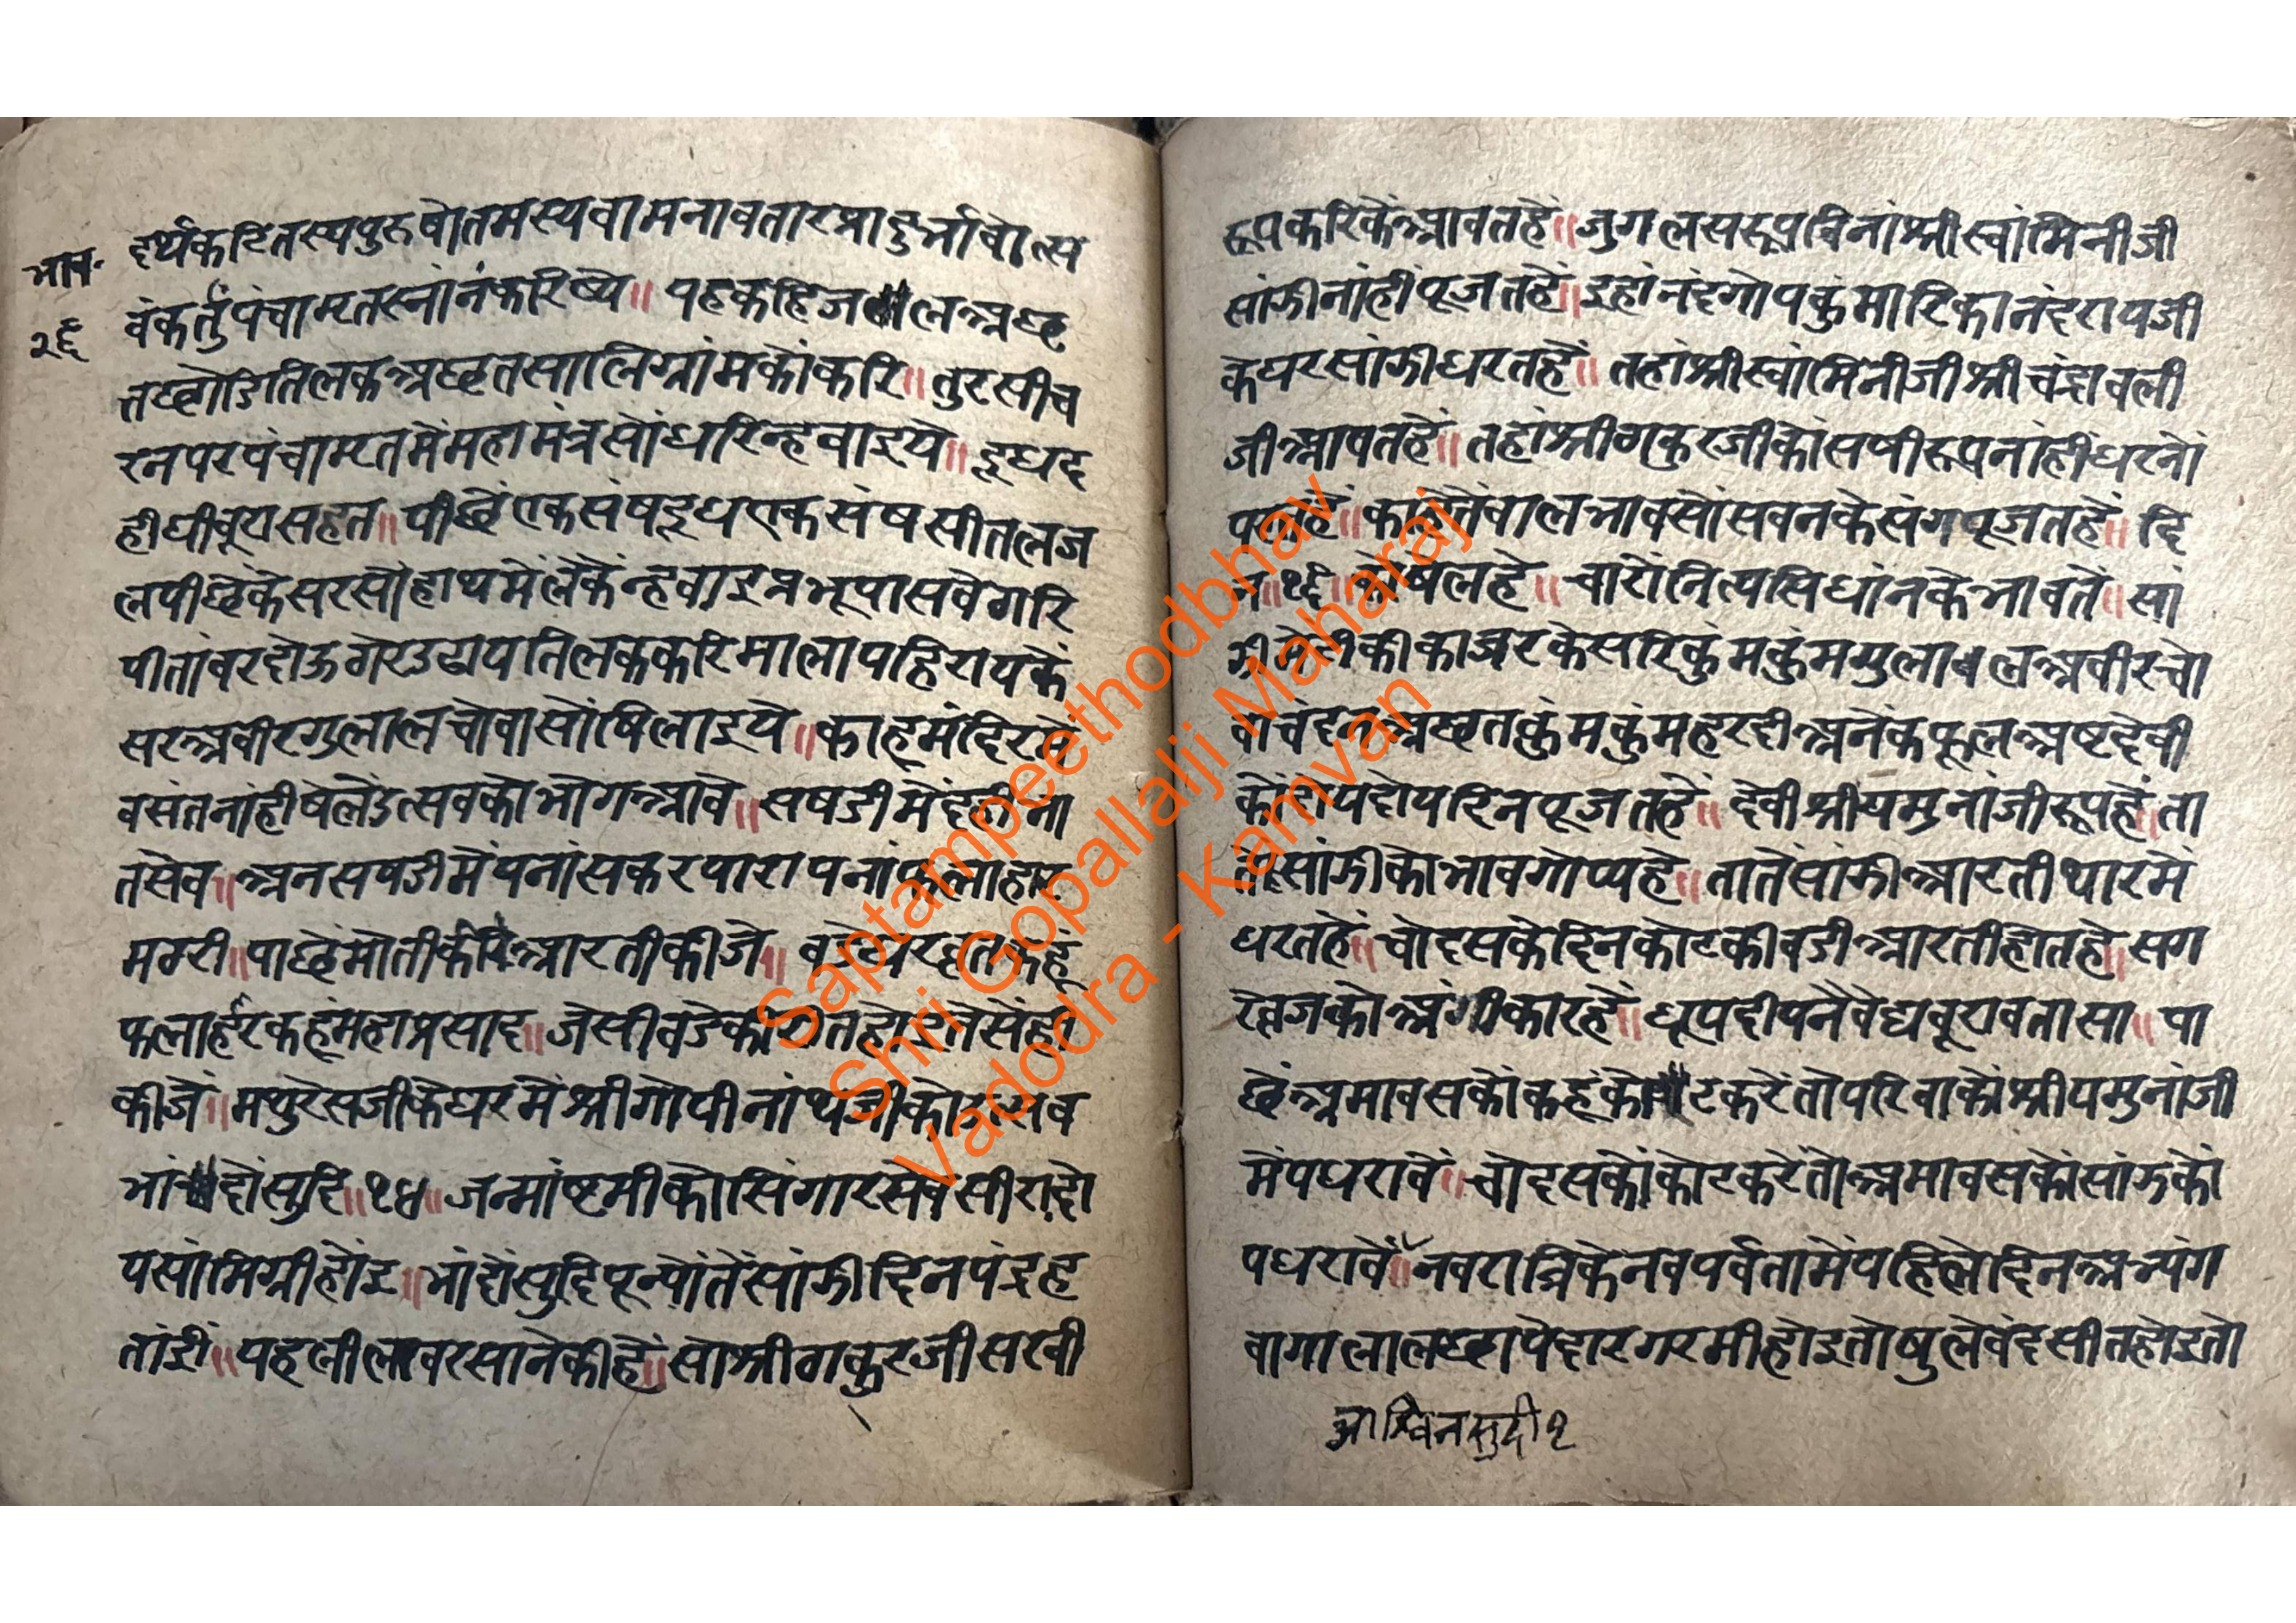 भाव॰
२६
दर्थकरितस्यपुरुषोतमस्यवामनावतारप्रादुर्भावोत्स
वंकर्तुंपंचाम्रतस्नांनंकरिष्ये॥ यहकहिजललअछ
तछोडितिलकअछतसालिग्रांमकोंकरि॥ तुरसीच
रनपरपंचाम्रतमेंमहामंत्रसोंधरिन्हवाइये॥ दूधद
हीघीबूरासहत॥ पीछेंएकसंषदूधएकसंषसीतलज
लपीछेंकेसरसोंहाथमेंलेकेंन्हवाइप्रभूपासबेंठारि
पीतांबरदोऊओरउढायतिलककरिमालापहिरायकें
सरअबीरगुलालचोवासोंषिलाइये॥ काहूमंदिरमें
बसंतनांहीषेलेंउत्सवकोभोगआवे॥ सषडीमेंदहीभा
तसेव॥ अनसषडीमेंपनांसकरपारापनांफलाहार
मठरी॥ पाछेंमोतीकीआरतीकीजे॥
फलाहारकहूंमहाप्रसाद॥ जेसीबडेकीरीतहोइतेसेंही
कीजे॥ मथुरेसजीकेघरमेंश्रीगोपीनांथजीकोउत्सव
भांदोंसुदि॥१४॥ जन्मांष्टमीकोसिंगारसेवसीरादो
यसांमिग्रीहोंइ॥ भांदोंसुदिपून्योंतेंसांझीदिनपंद्रह
तांई॥ यहलीलाबरसानेकीहें॥ सोश्रीठाकुरजीसखी
रूपकरिकेंआवतहें॥ जुगलसरूपबिनांश्रीस्वांमिनीजी
सांझीनांहींपूजतहें॥ इहांनंदगोपकुंमारिकानंदरायजी
केघरसांझीधरतहें॥ तहांश्रीस्वांमिनीजीश्रीचंद्रावली
जीआवतहें॥ तहांश्रीठाकुरजीकोंसषीरूपनांहीधरनों
परतहें॥ काहेतेंबालभावसोंसबनकेसंगपूजतहें॥ दि
न॥१५॥कोषेलहे॥ चारोंनित्यसिधांनकेभावतें॥ सां
झीमेंटीकीकाजरकेसरिकुंमकुंमगुलाबलअबीरचो
वाचंदनअछतकुंमकुंमहरदीअनेकफूलअष्टदेवी
कोदोयदोयदिनपूजतहें॥ देवीश्रीयमुनांजीरूपहें॥ ता
तेंसांझीकोभावगोप्यहे॥ तातेंसांझीआरतीथारमें
धरतहें॥ चोदसकेदिनकोटकीबडीआरतीहोतहे॥ सग
रेव्रजकोअंगीकारहें॥ धूपदीपनेवेद्यबूराबतासा॥ पा
छेंअमावसकोंकहूंकोटकरेंतोपरिवाकोंश्रीयमुनांजी
मेंपधरावें॥ चोदसकोंकोटकरेंतोअमावसकोंसांझकों
पधरावें॥ नवरात्रिकेनवपर्वतामेंपहिलेदिनअभ्यंग
वागालालछापेदारगरमीहोइतोषुलेबंदसीतहोइतो
आश्विनसुदी१
Saptampeethodbhav
Shri Gopallalji Maharaj
Vadodra - Kamvan